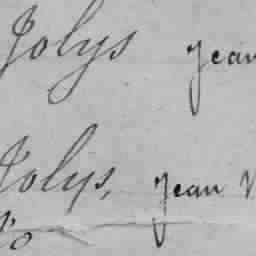 Jolys Jean
Jolys, Jean